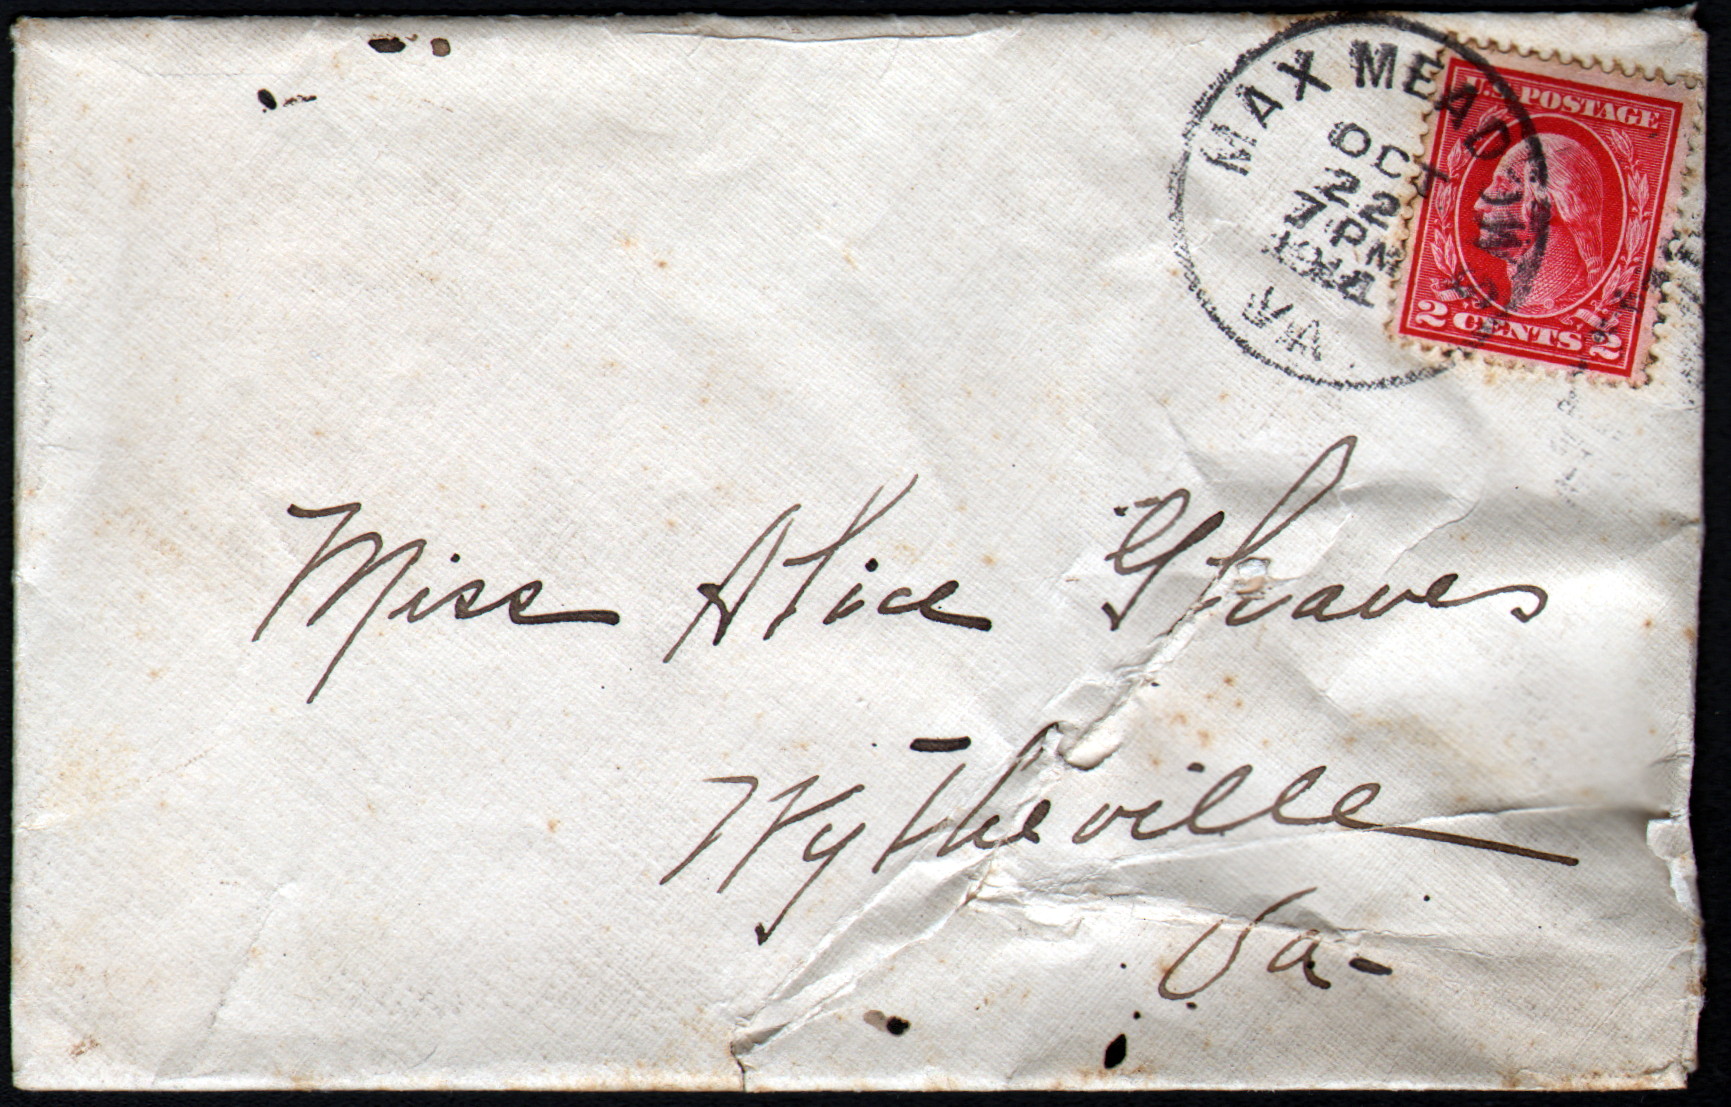 MAX MEADOWS
OCT
22
7 PM
VA.
U.S. POSTAGE
2 CENTS 2
Miss Alice Graves
Wytheville
Va-